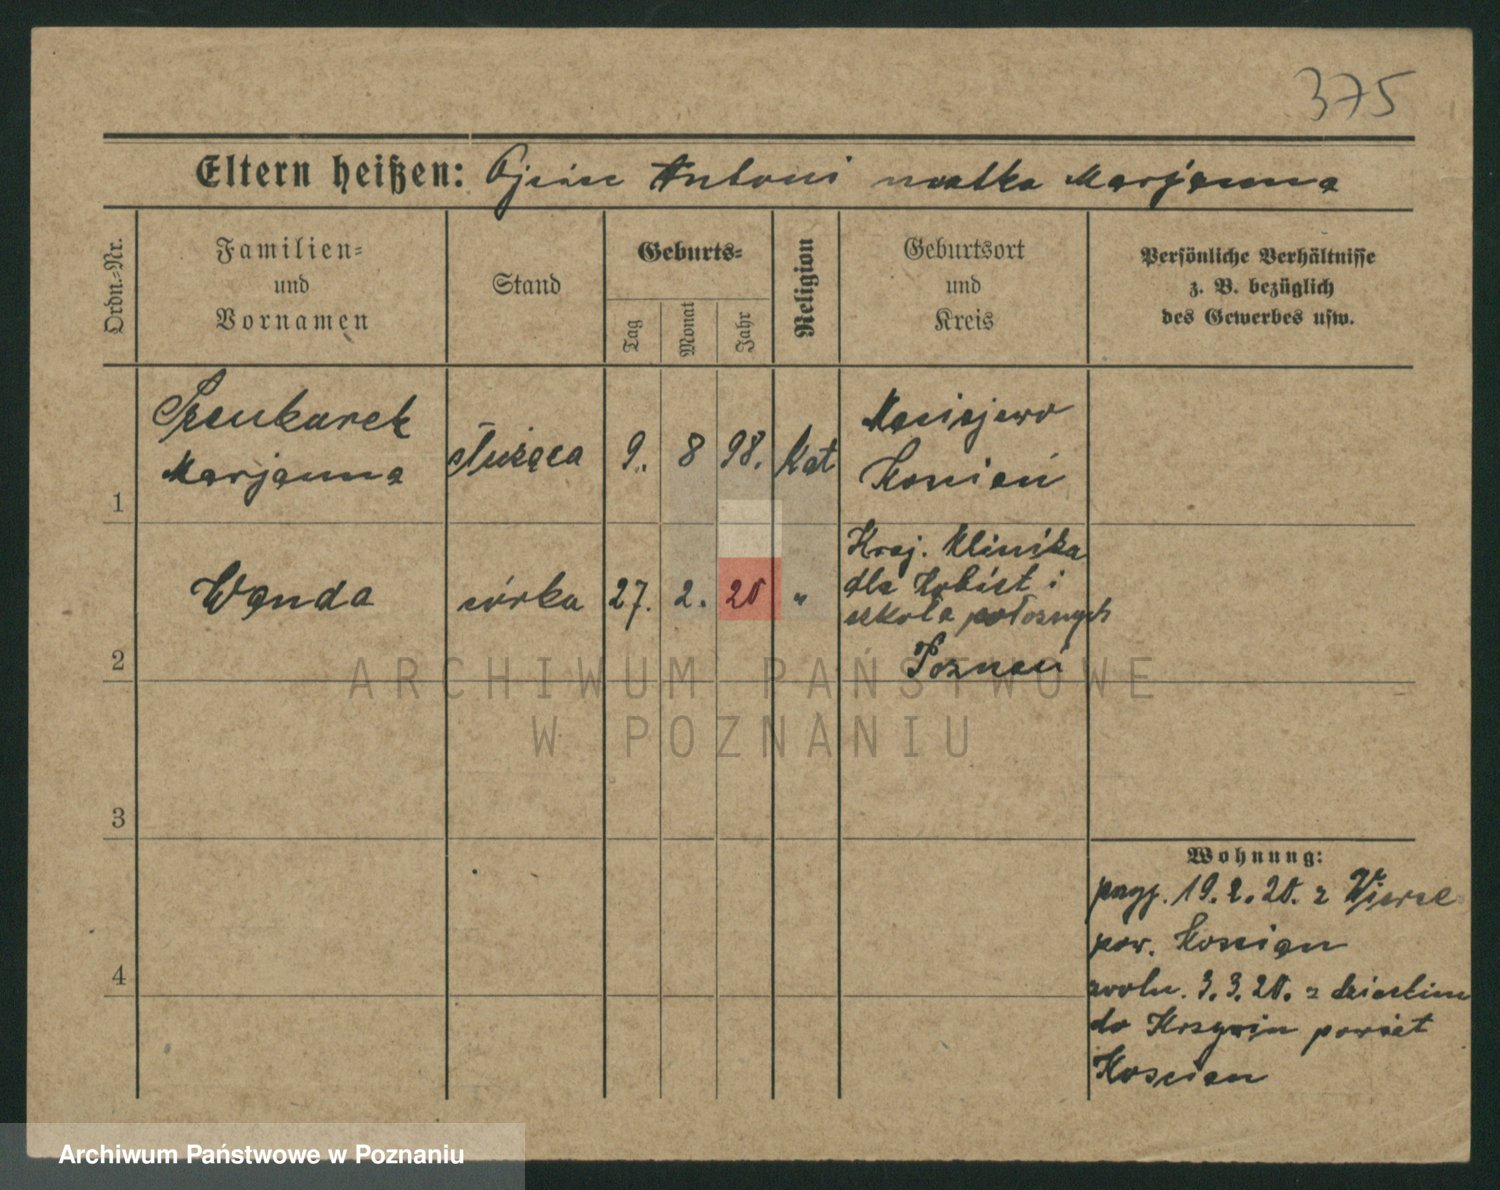 375
Eltern heißen: Ojciec Antoni matka Marjanna
Ordn.-Nr.
Familien-
und
Vornamen
Stand
Geburts-
Tag
Monat
Jahr
Religion
Geburtsort
und
Kreis
Persönliche Verhältnisse
z. B. bezüglich
des Gewerbes usw.
1
Marjanna
służąca
9. 8 98.
Kat
Maciejewo
Koscian
2
Wanda
córka
27. 2. 20
"
Kraj. Klinika
dla Kobiet i
szkoła położnych
Poznań
3
4
Wohnung:
przyj. 19.2.20. z
pow. Koscian
zwoln. 3.3.20. z dzieckiem
do Krzywin powiat
Koscian
ARCHIWUM PAŃSTWOWE
W POZNANIU
Archiwum Państwowe w Poznaniu